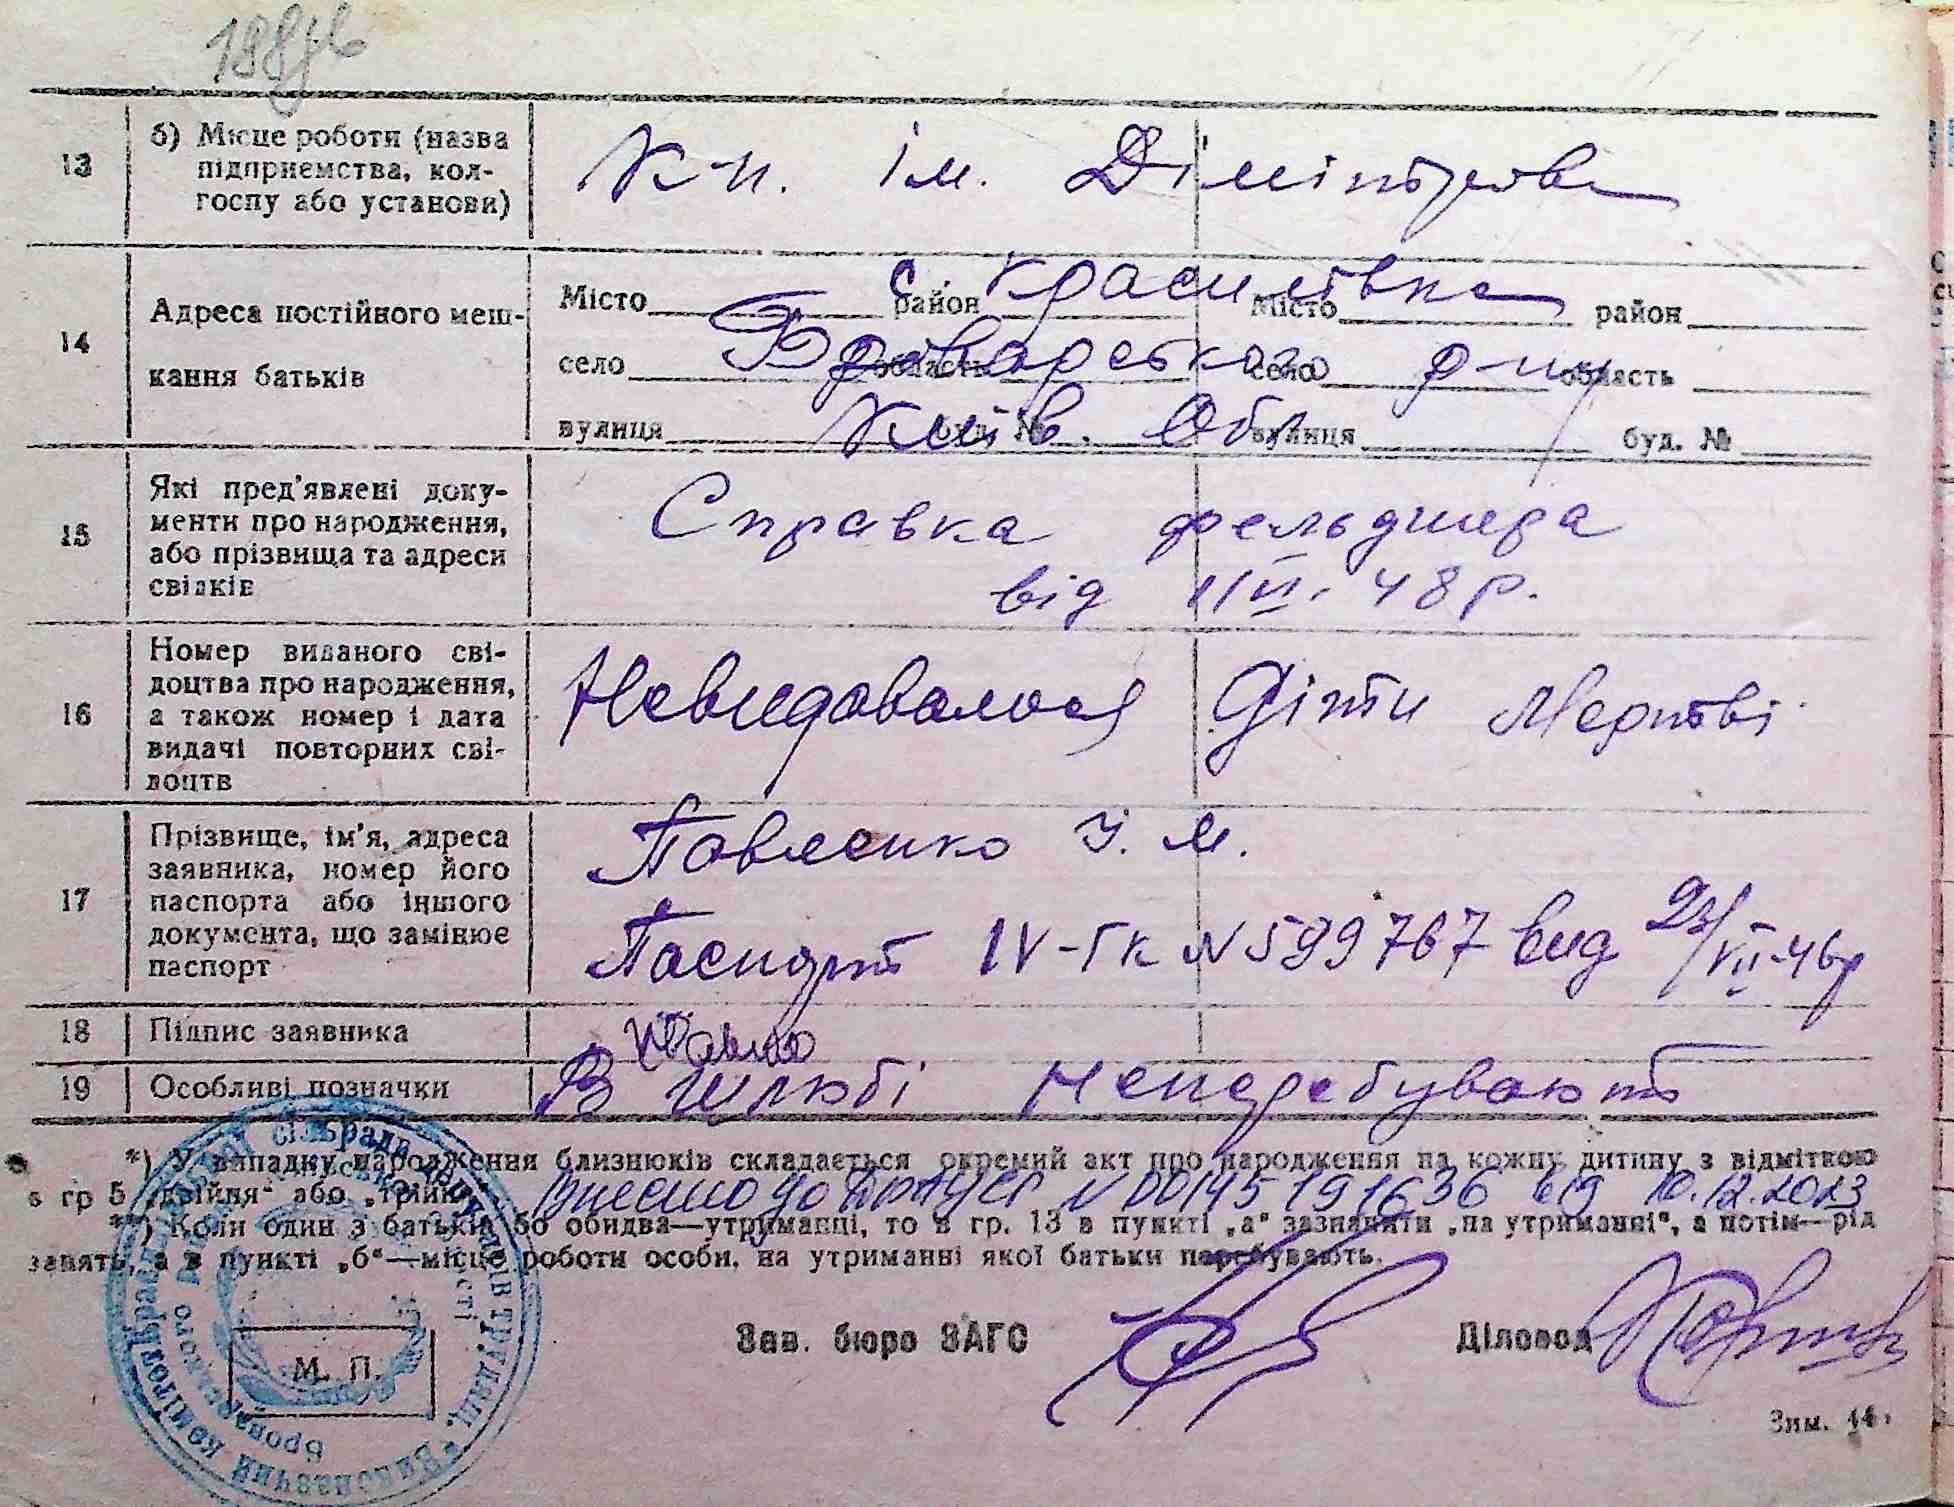 198зв
13
б) Місце роботи (назва
підприємства, кол-
госпу або установи)
К-п. ім. Дімітрова
14
Адреса постійного меш-
кання батьків
с. Красилівка
Місто район Місто район
Броварського р-ну
село область село область
Київ. Обл
вулиця буд. № вулиця буд. №
15
Які пред'явлені доку-
менти про народження,
або прізвища та адреси
свідків
Справка фельдшера
від 11 VI. 48 р.
16
Номер виданого сві-
доцтва про народження,
а також номер і дата
видачі повторних сві-
доцтв
Невидавалося Діти Мертві
17
Прізвище, ім'я, адреса
заявника, номер його
паспорта або іншого
документа, що замінює
паспорт
Павленко І. М.
Паспорт IV-ГК N 599767 вид 23/VII-46р
18
Підпис заявника
19
Особливі позначки
В шлюбі неперебувають
*) У випадку народження близнюків складається окремий акт про народження на кожну дитину з відміткою
в гр 5 „двійня" або „трійня"
Внесено до ДРАЦСГ N 00145191636 від 10.12.2023
**) Коли один з батьків або обидва—утриманці, то в гр. 13 в пункті „а" зазначити „на утриманні", а потім—рід
занять, а в пункті „б"—місце роботи особи, на утриманні якої батьки перебувають.
Зав. бюро ЗАГС
Діловод
М. П.
Виконавчий комітет Красилівської сільради депутатів трудящ.
Броварського району Київської області
Зам. 44